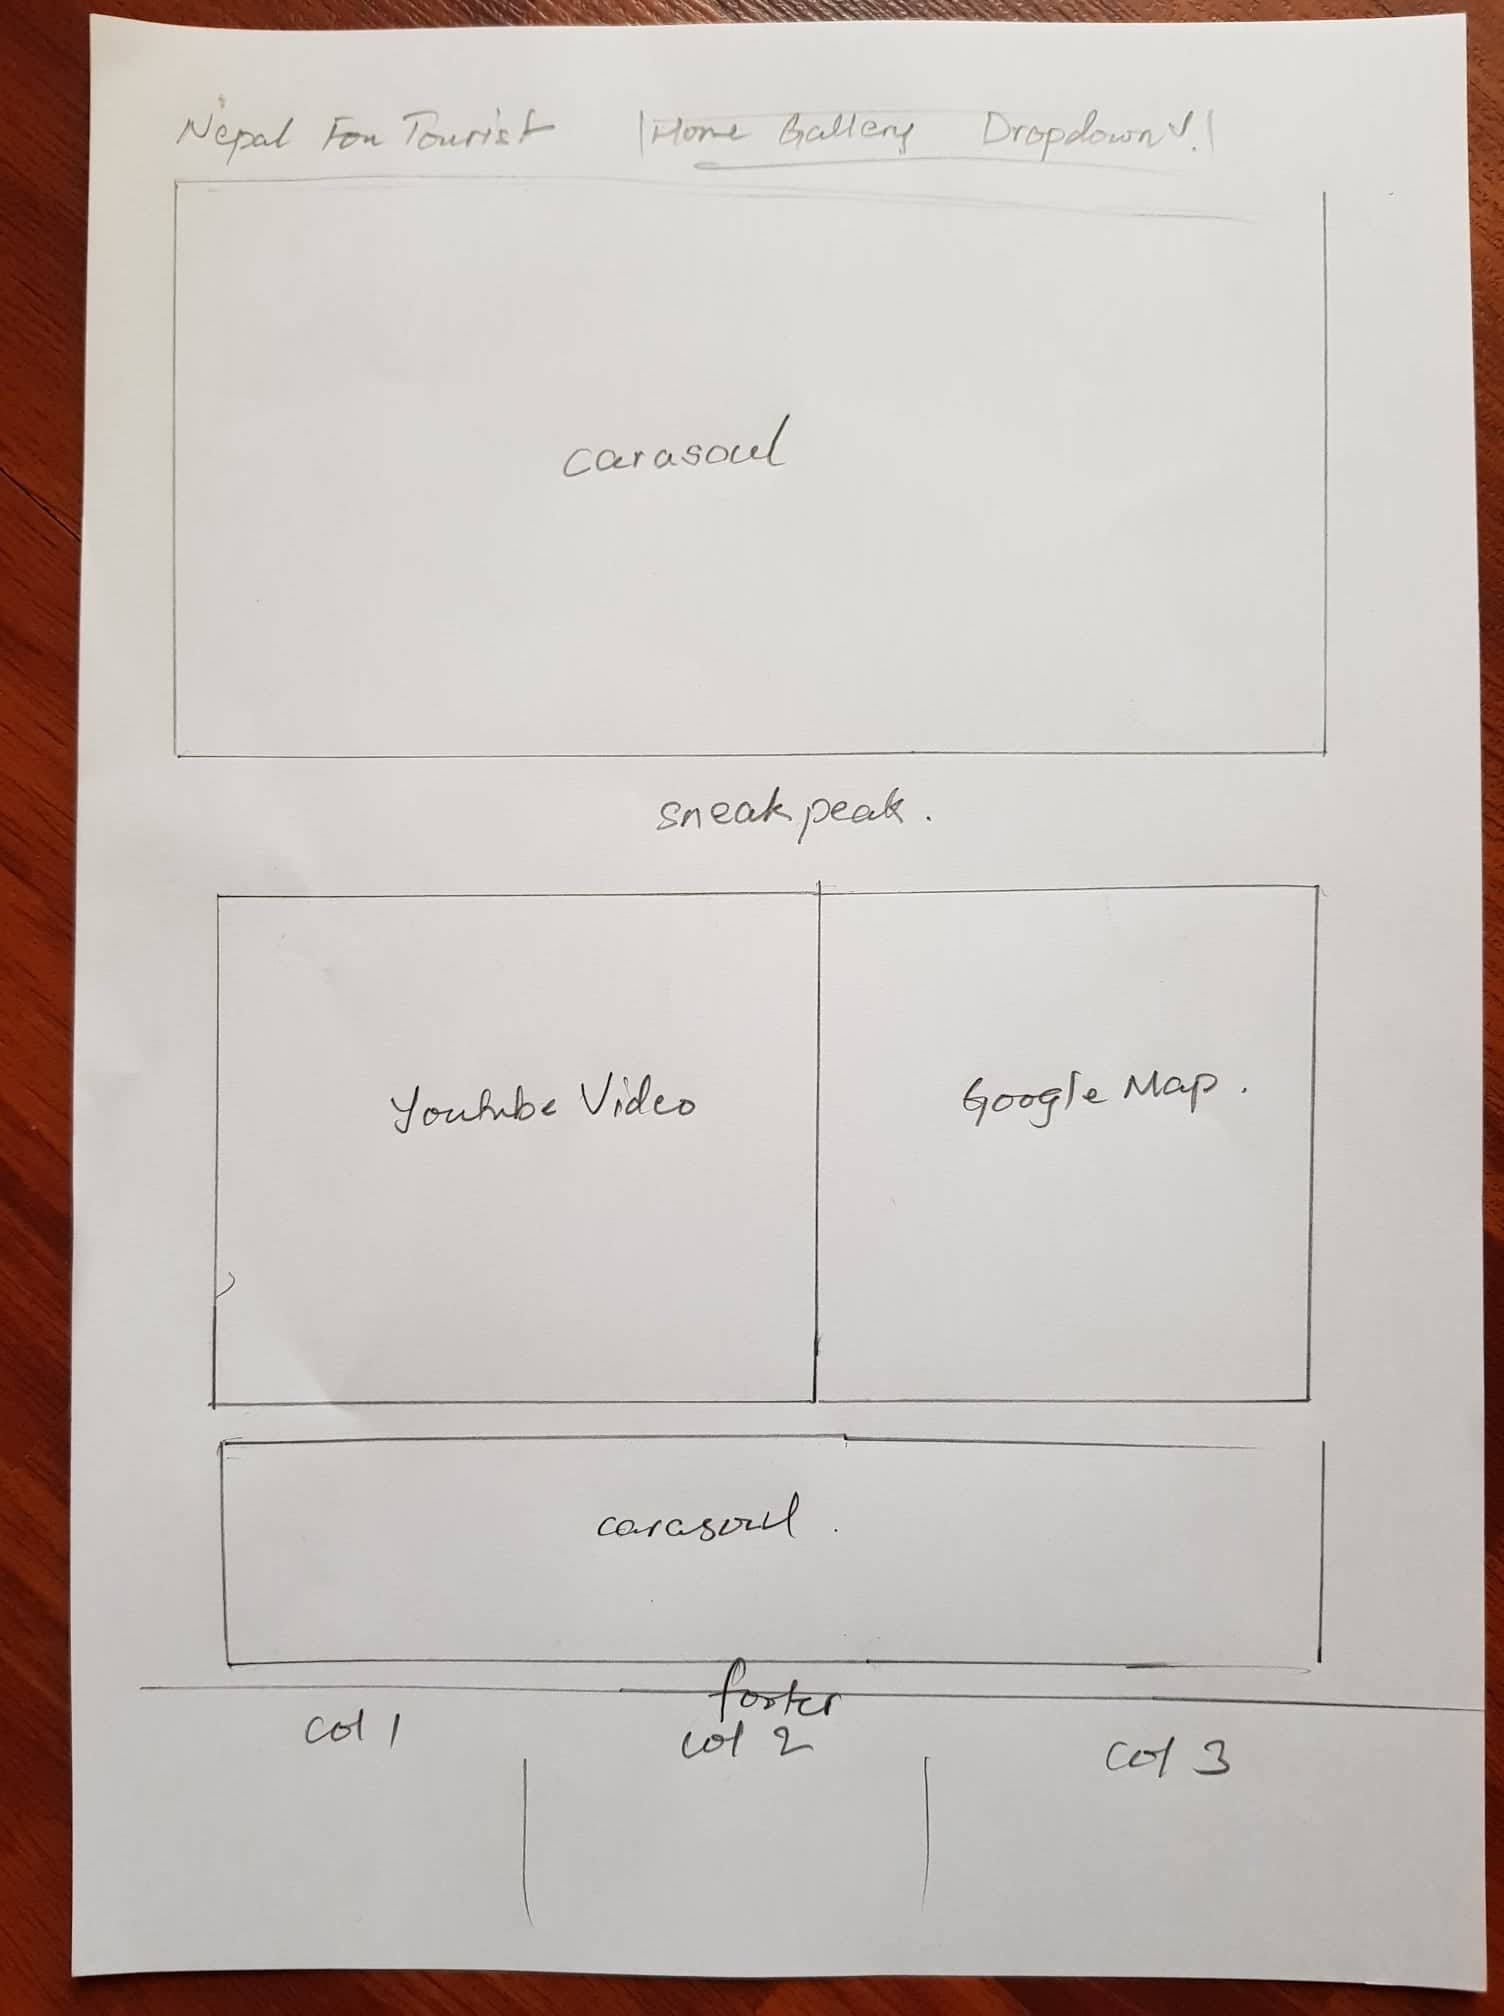 Nepal For Tourist |Home Gallery Dropdown v.|
carasoul
sneak peak.
Youtube Video
Google Map.
carasoul.
footer
col 1
col 2
col 3